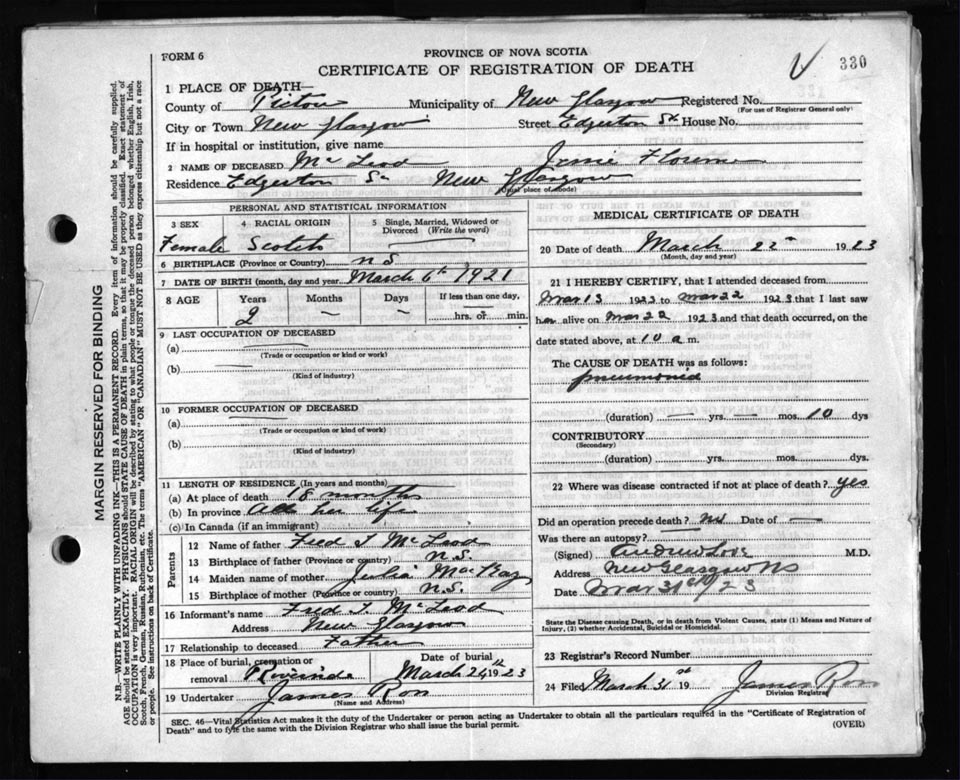 FORM 6
PROVINCE OF NOVA SCOTIA
CERTIFICATE OF REGISTRATION OF DEATH
330
1 PLACE OF DEATH—
County of Pictou Municipality of New Glasgow Registered No.
(For use of Registrar General only)
City or Town New Glasgow Street Edgerton St. House No.
If in hospital or institution, give name
2 NAME OF DECEASED Mc Leod Florence
Residence Edgerton St New Glasgow
(Usual place of abode)
PERSONAL AND STATISTICAL INFORMATION
3 SEX 4 RACIAL ORIGIN 5 Single, Married, Widowed or Divorced (Write the word)
Female Scotch
6 BIRTHPLACE (Province or Country) N S
7 DATE OF BIRTH (month, day and year) March 6th 1921
8 AGE Years Months Days If less than one day,
2 — — hrs. or min.
9 LAST OCCUPATION OF DECEASED
(a)
(Trade or occupation or kind or work)
(b)
(Kind of industry)
10 FORMER OCCUPATION OF DECEASED
(a)
(Trade or occupation or kind or work)
(b)
(Kind of industry)
11 LENGTH OF RESIDENCE (In years and months)
(a) At place of death 18 months
(b) In province All her life
(c) In Canada (if an immigrant)
Parents
12 Name of father Fred T McLeod
13 Birthplace of father (Province or country) N.S.
14 Maiden name of mother Julia MacKay
15 Birthplace of mother (Province or country) N.S.
16 Informant's name Fred T. McLeod
Address New Glasgow
17 Relationship to deceased Father
18 Place of burial, cremation or removal Date of burial
Riverside March 24th 1923
19 Undertaker James Ross
(Name and Address)
MEDICAL CERTIFICATE OF DEATH
20 Date of death March 22nd 1923
(Month, day and year)
21 I HEREBY CERTIFY, that I attended deceased from
Mar 13 1923 to Mar 22 1923 that I last saw
her alive on Mar 22 1923 and that death occurred, on
date stated above, at 10 a m.
The CAUSE OF DEATH was as follows:
pneumonia
(duration) — yrs. — mos. 10 dys
CONTRIBUTORY
(Secondary)
(duration) yrs. mos. dys.
22 Where was disease contracted if not at place of death? yes
Did an operation precede death? no Date of —
Was there an autopsy?
(Signed) Andrew Love M.D.
Address New Glasgow NS
Date Mar 31st 23
State the Disease causing Death, or in death from Violent Causes, state (1) Means and Nature of
Injury, (2) whether Accidental, Suicidal or Homicidal.
23 Registrar's Record Number
24 Filed March 31st 19 James Ross
Division Registrar
SEC. 46—Vital Statistics Act makes it the duty of the Undertaker or person acting as Undertaker to obtain all the particulars required in the "Certificate of Registration of
Death" and to fyle the same with the Division Registrar who shall issue the burial permit. (OVER)
MARGIN RESERVED FOR BINDING
N.B.—WRITE PLAINLY WITH UNFADING INK—THIS IS A PERMANENT RECORD. Every item of information should be carefully supplied.
AGE should be stated EXACTLY. PHYSICIANS should STATE CAUSE OF DEATH in plain terms, so that it may be properly classified. Exact statement of
OCCUPATION is very important. RACIAL ORIGIN will be described by stating to what people or tongue the deceased person belonged whether English, Irish,
Scotch, French, German, Russian, Ruthenian, etc. The terms "AMERICAN" OR "CANADIAN" MUST NOT BE USED as they express citizenship but not a race
or people. See instructions on back of Certificate.